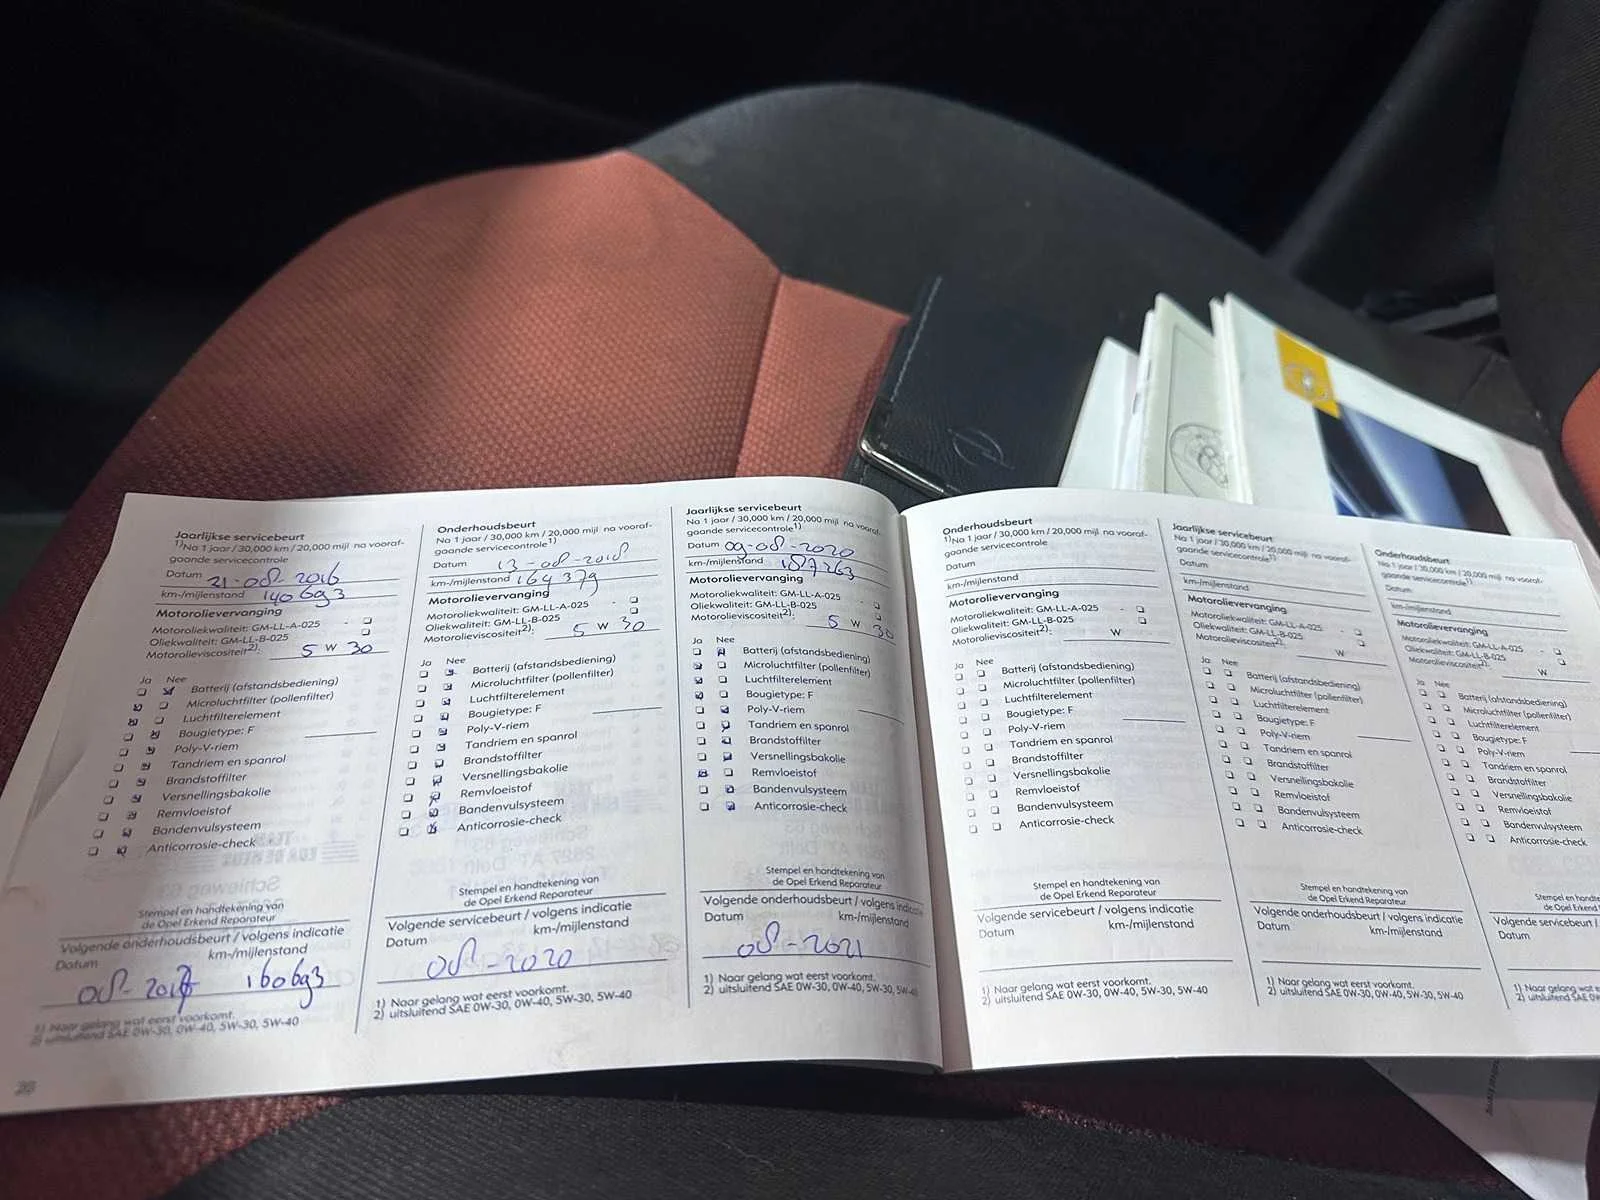 Jaarlijkse servicebeurt
1)Na 1 jaar / 30,000 km / 20,000 mijl na vooraf-
gaande servicecontrole
Datum 21-08-2016
km-/mijlenstand 140693
Motorolievervanging
Motoroliekwaliteit: GM-LL-A-025 -
Oliekwaliteit: GM-LL-B-025
Motorolieviscositeit2): 5 W 30
Ja Nee
Batterij (afstandsbediening)
Microluchtfilter (pollenfilter)
Luchtfilterelement
Bougietype: F
Poly-V-riem
Tandriem en spanrol
Brandstoffilter
Versnellingsbakolie
Remvloeistof
Bandenvulsysteem
Anticorrosie-check
Stempel en handtekening van
de Opel Erkend Reparateur
Volgende onderhoudsbeurt / volgens indicatie
Datum km-/mijlenstand
160693
1) Naar gelang wat eerst voorkomt.
2) uitsluitend SAE 0W-30, 0W-40, 5W-30, 5W-40
Onderhoudsbeurt
Na 1 jaar / 30,000 km / 20,000 mijl na vooraf-
gaande servicecontrole1)
Datum 13-08-2018
km-/mijlenstand 164379
Motorolievervanging
Motoroliekwaliteit: GM-LL-A-025 -
Oliekwaliteit: GM-LL-B-025
Motorolieviscositeit2): 5 W 30
Ja Nee
Batterij (afstandsbediening)
Microluchtfilter (pollenfilter)
Luchtfilterelement
Bougietype: F
Poly-V-riem
Tandriem en spanrol
Brandstoffilter
Versnellingsbakolie
Remvloeistof
Bandenvulsysteem
Anticorrosie-check
Stempel en handtekening van
de Opel Erkend Reparateur
Volgende servicebeurt / volgens indicatie
Datum km-/mijlenstand
08-2020
1) Naar gelang wat eerst voorkomt.
2) uitsluitend SAE 0W-30, 0W-40, 5W-30, 5W-40
Jaarlijkse servicebeurt
Na 1 jaar / 30,000 km / 20,000 mijl na vooraf-
gaande servicecontrole1)
Datum 09-08-2020
km-/mijlenstand 187263
Motorolievervanging
Motoroliekwaliteit: GM-LL-A-025 -
Oliekwaliteit: GM-LL-B-025
Motorolieviscositeit2): 5 W 30
Ja Nee
Batterij (afstandsbediening)
Microluchtfilter (pollenfilter)
Luchtfilterelement
Bougietype: F
Poly-V-riem
Tandriem en spanrol
Brandstoffilter
Versnellingsbakolie
Remvloeistof
Bandenvulsysteem
Anticorrosie-check
Stempel en handtekening van
de Opel Erkend Reparateur
Volgende onderhoudsbeurt / volgens indicatie
Datum km-/mijlenstand
08-2021
1) Naar gelang wat eerst voorkomt.
2) uitsluitend SAE 0W-30, 0W-40, 5W-30, 5W-40
Onderhoudsbeurt
Na 1 jaar / 30,000 km / 20,000 mijl na vooraf-
gaande servicecontrole1)
Datum
km-/mijlenstand
Motorolievervanging
Motoroliekwaliteit: GM-LL-A-025 -
Oliekwaliteit: GM-LL-B-025
Motorolieviscositeit2): W
Ja Nee
Batterij (afstandsbediening)
Microluchtfilter (pollenfilter)
Luchtfilterelement
Bougietype: F
Poly-V-riem
Tandriem en spanrol
Brandstoffilter
Versnellingsbakolie
Remvloeistof
Bandenvulsysteem
Anticorrosie-check
Stempel en handtekening van
de Opel Erkend Reparateur
Volgende servicebeurt / volgens indicatie
Datum km-/mijlenstand
1) Naar gelang wat eerst voorkomt.
2) uitsluitend SAE 0W-30, 0W-40, 5W-30, 5W-40
Jaarlijkse servicebeurt
Na 1 jaar / 30,000 km / 20,000 mijl na vooraf-
gaande servicecontrole1)
Datum
km-/mijlenstand
Motorolievervanging
Motoroliekwaliteit: GM-LL-A-025 -
Oliekwaliteit: GM-LL-B-025
Motorolieviscositeit2): W
Ja Nee
Batterij (afstandsbediening)
Microluchtfilter (pollenfilter)
Luchtfilterelement
Bougietype: F
Poly-V-riem
Tandriem en spanrol
Brandstoffilter
Versnellingsbakolie
Remvloeistof
Bandenvulsysteem
Anticorrosie-check
Stempel en handtekening van
de Opel Erkend Reparateur
Volgende onderhoudsbeurt / volgens indicatie
Datum km-/mijlenstand
1) Naar gelang wat eerst voorkomt.
2) uitsluitend SAE 0W-30, 0W-40, 5W-30, 5W-40
Onderhoudsbeurt
Na 1 jaar / 30,000 km / 20,000 mijl na vooraf-
gaande servicecontrole1)
Datum
km-/mijlenstand
Motorolievervanging
Motoroliekwaliteit: GM-LL-A-025 -
Oliekwaliteit: GM-LL-B-025
Motorolieviscositeit2): W
Ja Nee
Batterij (afstandsbediening)
Microluchtfilter (pollenfilter)
Luchtfilterelement
Bougietype: F
Poly-V-riem
Tandriem en spanrol
Brandstoffilter
Versnellingsbakolie
Remvloeistof
Bandenvulsysteem
Anticorrosie-check
Stempel en handte
de Opel Erkend
Volgende servicebeurt /
Datum
1) Naar gelang wat e
2) uitsluitend SAE 0W-